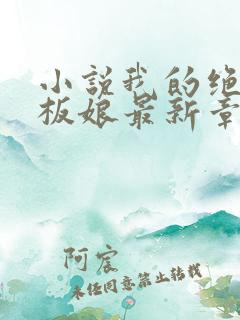 小说我的绝
板娘最新章
阿宸
未经同意禁止转载